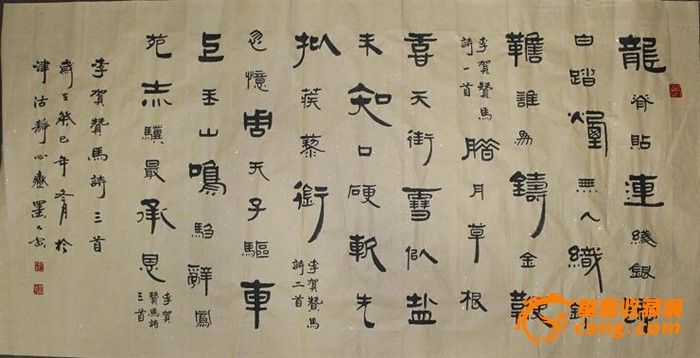 龍脊貼連綫銀蹄
白踏煙無人織錦
韂誰為鑄金鞭
李賀贊馬
詩一首
臘月草根
天街雪似盐
未知口硬軟先
拟蒺藜銜
李賀贊馬
詩二首
忽憶周天子驅車
上玉山鳴騶辭鳳
苑赤驥最承恩
李賀
贊馬詩
三首
李賀贊馬詩三首
歲在癸巳年冬月於
津沽靜心齋墨人書
華夏收藏网
cang.com